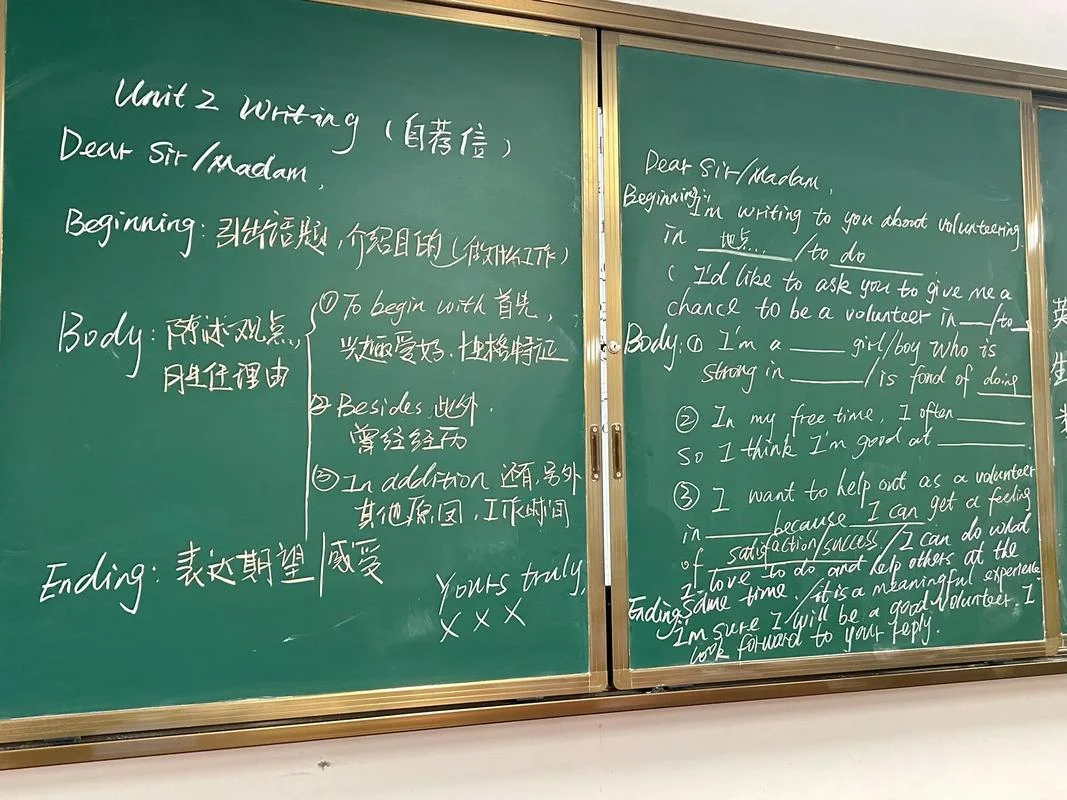 Unit 2 Writing (自荐信)
Dear Sir/Madam,
Beginning: 引出话题,介绍目的(做什么工作)
Body: 陈述观点,
胜任理由
① To begin with 首先,
兴趣爱好、性格特征
② Besides 此外,
曾经经历
③ In addition 还有,另外
其他原因,工作时间
Ending: 表达期望/感受
Yours truly,
X X X
Dear Sir/Madam,
Beginning:
I'm writing to you about volunteering
in 地点... /to do
( I'd like to ask you to give me a
chance to be a volunteer in /to
Body: ① I'm a girl/boy who is
strong in /is fond of doing
② In my free time, I often
so I think I'm good at
③ I want to help out as a volunteer
in because I can get a feeling
of satisfaction/success/I can do what
I love to do and help others at the
same time./it is a meaningful experience
Ending:
I'm sure I will be a good volunteer. I
look forward to your reply.
英
生